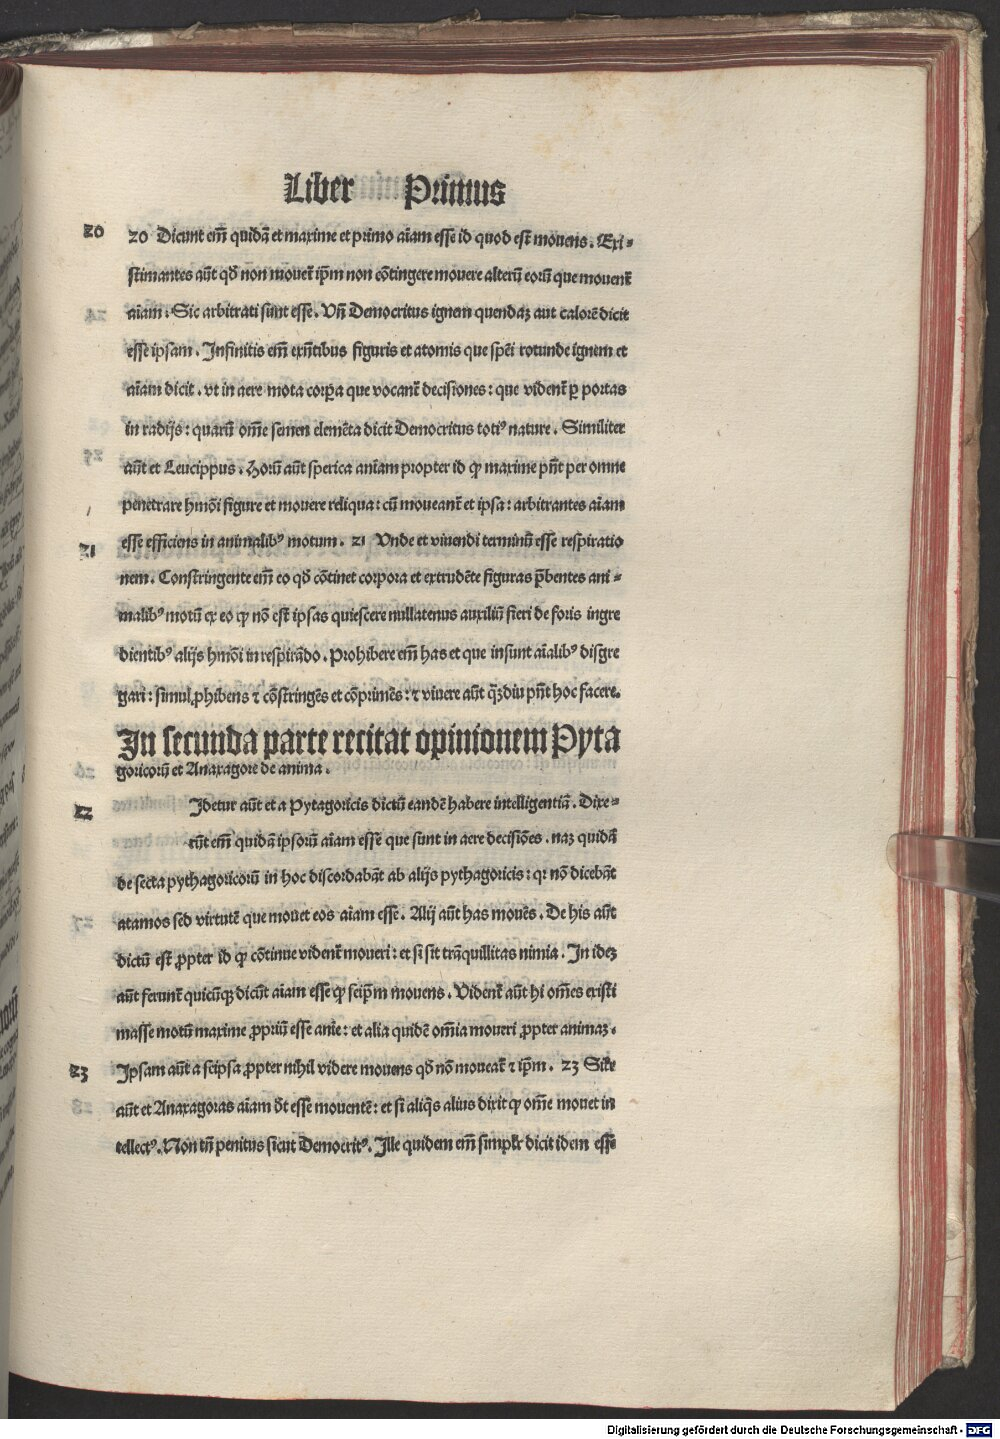 Liber Primus
20 20 Dicunt em̄ quidā et maxime et primo aīam esse id quod est mouens. Exi⸗
stimantes aūt qd̄ non mouet᷑ ip̄m non cōtingere mouere alterū eorū que mouent᷑
aīam. Sic arbitrati sunt esse. Vn̄ Democritus ignem quendaꝫ aut calorē dicit
esse ipsam. Infinitis em̄ exn̄tibus figuris et atomis que spēi rotunde ignem et
aīam dicit. vt in aere mota corꝑa que vocant᷑ decisiones: que vident᷑ ꝑ portas
in radijs: quarū om̄e semen elemēta dicit Democritus totiꝰ nature. Similiter
aūt et Leucippus. Horū aūt sperica aniam propter id ꝙ maxime pn̄t per omne
penetrare hmōi figure et mouere reliqua: cū moueant᷑ et ipsa: arbitrantes aīam
21 esse efficiens in animalibꝰ motum. 21 Vnde et viuendi terminū esse respiratio
nem. Constringente em̄ eo qd̄ cōtinet corpora et extrudēte figuras p̄bentes ani⸗
malibꝰ motū ex eo ꝙ nō est ipsas quiescere nullatenus auxiliū fieri de foris ingre
dientibꝰ alijs hmōi in respirādo. Prohibere em̄ has et que insunt aīalibꝰ disgre
gari: simul ꝓhibens ⁊ cōstringēs et cōprimēs: ⁊ viuere aūt qꝫdiu pn̄t hoc facere.
In secunda parte recitat opinionem Pyta
goricorū et Anaxagore de anima.
22 Idetur aūt et a Pytagoricis dictū eandē habere intelligentiā. Dixe⸗
rūt em̄ quidā ipsorū aīam esse que sunt in aere decisiōes. naꝫ quidā
de secta pythagoricorū in hoc discordabāt ab alijs pythagoricis: qꝛ nō dicebāt
atamos sed virtutē que mouet eos aīam esse. Alij aūt has mouēs. De his aūt
dictū est ꝓpter id ꝙ cōtinue vident᷑ moueri: et si sit trāquillitas nimia. In ideꝫ
aūt ferunt᷑ quicūqꝫ dicūt aīam esse ꝙ seip̄m mouens. Vident᷑ aūt hi om̄es existi
masse motū maxime ꝓpriū esse anīe: et alia quidē om̄ia moueri ꝓpter animaꝫ.
23 Ipsam aūt a seipsa ꝓpter nihil videre mouens qd̄ nō moueat᷑ ⁊ ip̄m. 23 Sil̄r
aūt et Anaxagoras aīam dt̄ esse mouentē: et si aliq̄s alius dixit ꝙ om̄e mouet in
tellectꝰ. Non tn̄ penitus sicut Democritꝰ. Ille quidem em̄ simpl̄r dicit idem esse
Digitalisierung gefördert durch die Deutsche Forschungsgemeinschaft - DFG